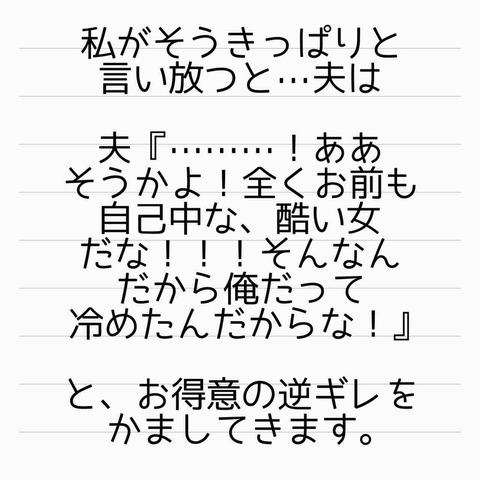 私がそうきっぱりと
言い放つと…夫は
夫『………！ああ
そうかよ！全くお前も
自己中な、酷い女
だな！！！そんなん
だから俺だって
冷めたんだからな！』
と、お得意の逆ギレを
かましてきます。